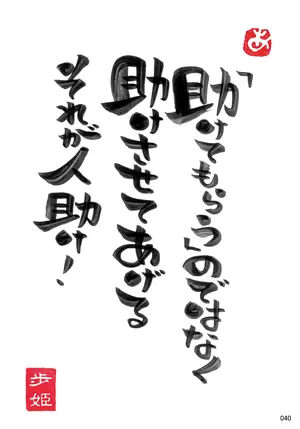 あ
「助けてもらう」のではなく
助けさせてあげる
それが人助け！
歩姫
040